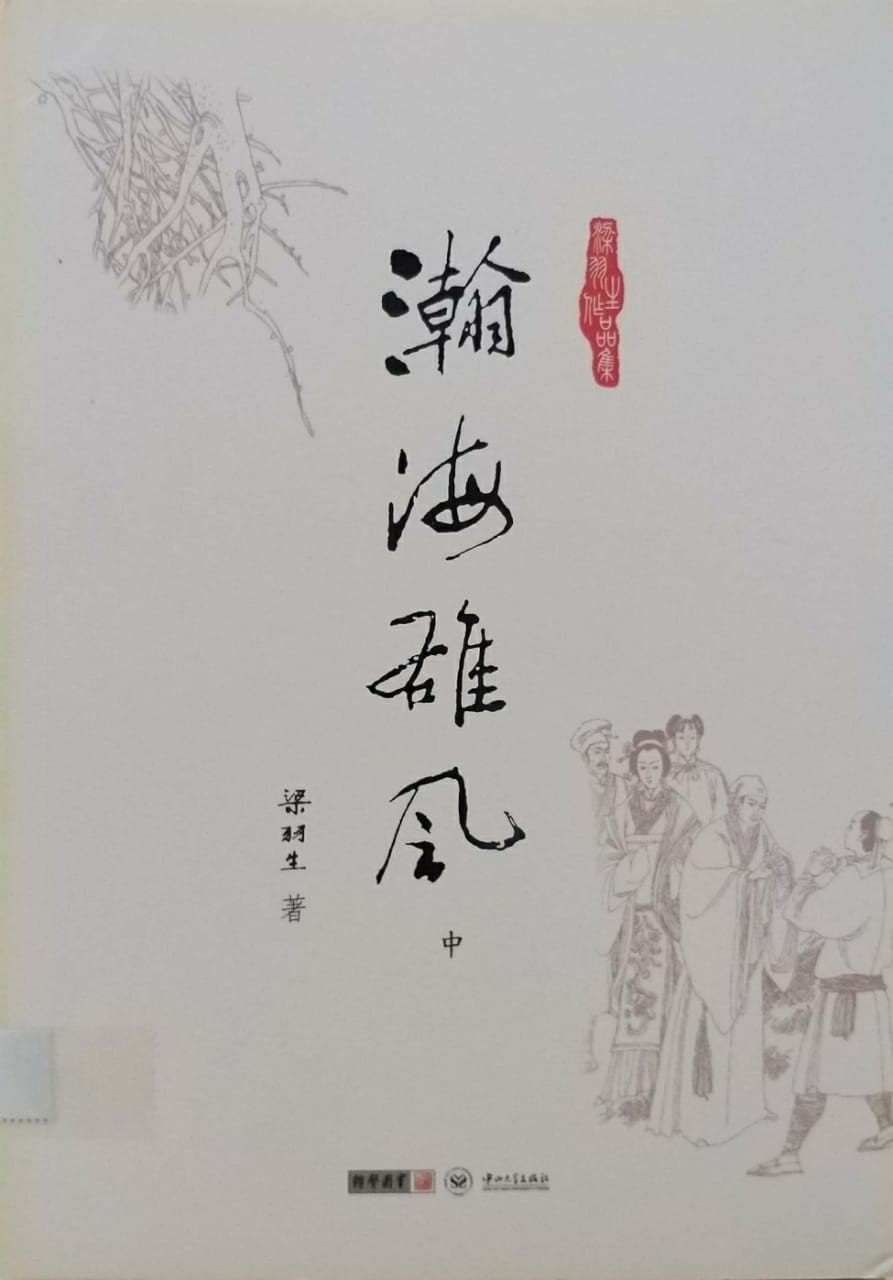 梁羽生作品集
瀚海雄风
中
梁羽生 著
朗声图书
中山大学出版社